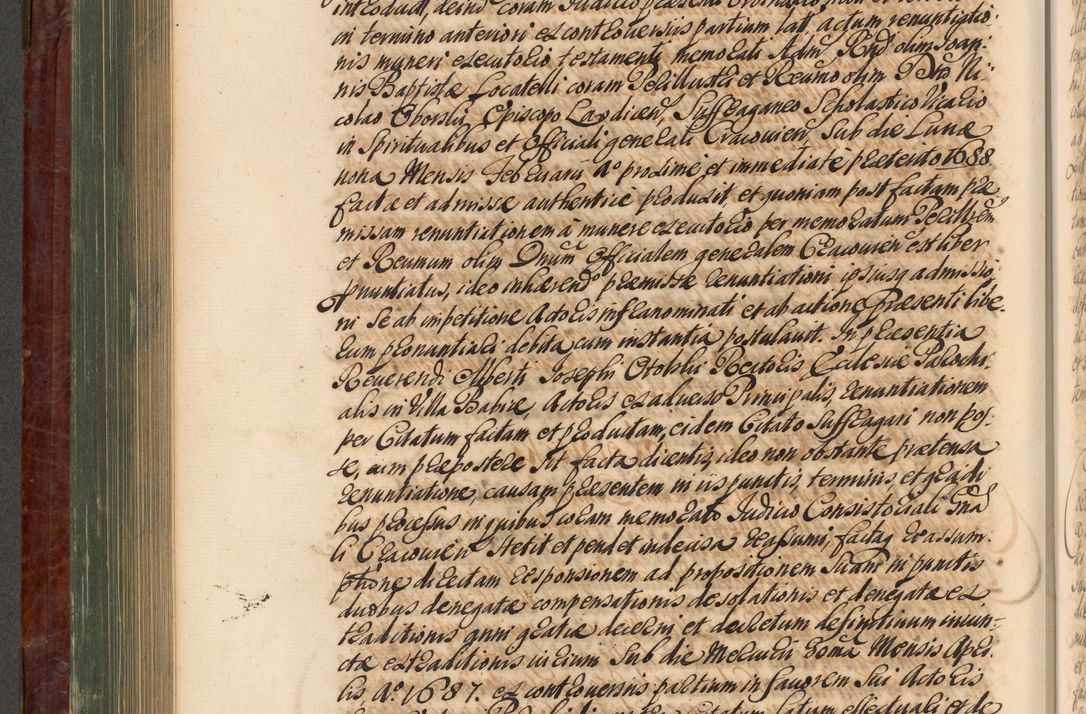 introduct, deind coram Judicio praesenti
in termino anteriori ex controversiis partium lat, actum renuntiatio-
nis muneri executorio testamenti memorati Admˢ Rnd olim Joan-
nis Baptistæ Locatelli coram Perillustri et Reumo olim Dno Ni-
colao Oborski Episcopo Laodicen, Suffraganeo Scholastico Vicario
in Spiritualibus et Officiali generali Cracovien, Sub die Lunæ
nona Mensis Februarii Aº proxime et immediate præterito 1688
factæ et admissæ authentice produxit, et quoniam post factam præ
missam renuntiationem à munere executorio per memoratum Perillrem
et Reumum olim Dnum Officialem generalem Cracovien est liber
pnuntiatus, ideo inhærend præmissæ renuntiationi ipsiusq admissio
ni Se ab impetitione Actoris infranominati et ab actione præsenti libe-
rum pronuntiari debita cum instantia postulavit. In præsentia
Reverendi Alberti Josephi Rectoris Ecclesiæ Parochi-
alis in Villa Babice, Actoris ex adverso Principalis, renuntiationem
per Citatum factam et productam, eidem Citato Suffragari non pos-
se, cum præpostere sit facta dicentis, ideo non obstante prætensa
renuntiatione, causam præsentem in iis punctis, terminis, et gradi
bus processus in quibus coram memorato Judicio Consistoriali Gnra
li Cracovien Stetit et pendet indecisa reassumi, factaq reassum-
ptione directam responsionem ad propositionem Suam in punctis
duobus denegatæ compensationis desolationis et denegatæ ex
traditionis gnri gratiæ decerni et decretum definitivum
ctæ extraditionis in rium Sub die Mercurii Mensis Apri
lis, Aº 1687. ex controversiis partium in favorem Sui Actoris
Citatum latum effectuali et de